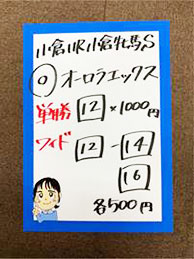 小倉11R小倉牝馬S
◎ オーロラエックス
単勝 12 ×1000円
ワイド 12 - 14
16
各500円